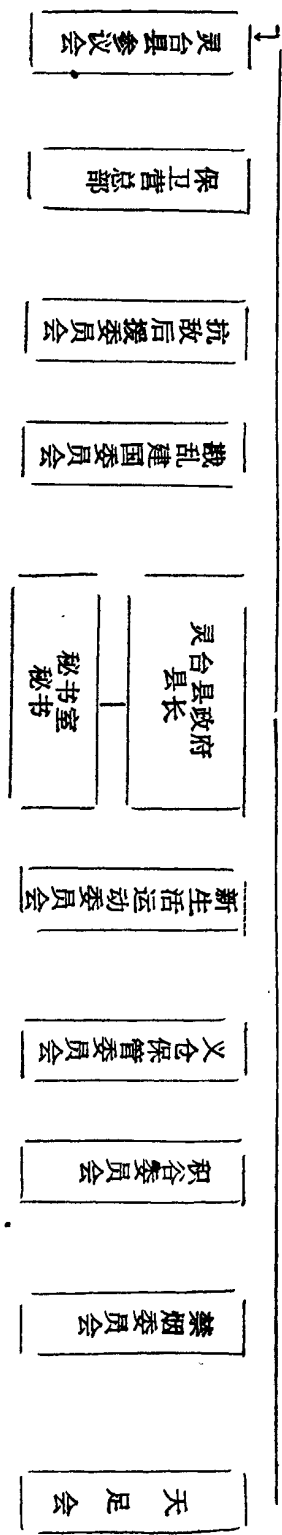 灵台县参议会
保卫营总部
抗敌后援委员会
戡乱建国委员会
灵台县政府
县长
秘书室
秘书
新生活运动委员会
义仓保管委员会
积谷委员会
禁烟委员会
天足会